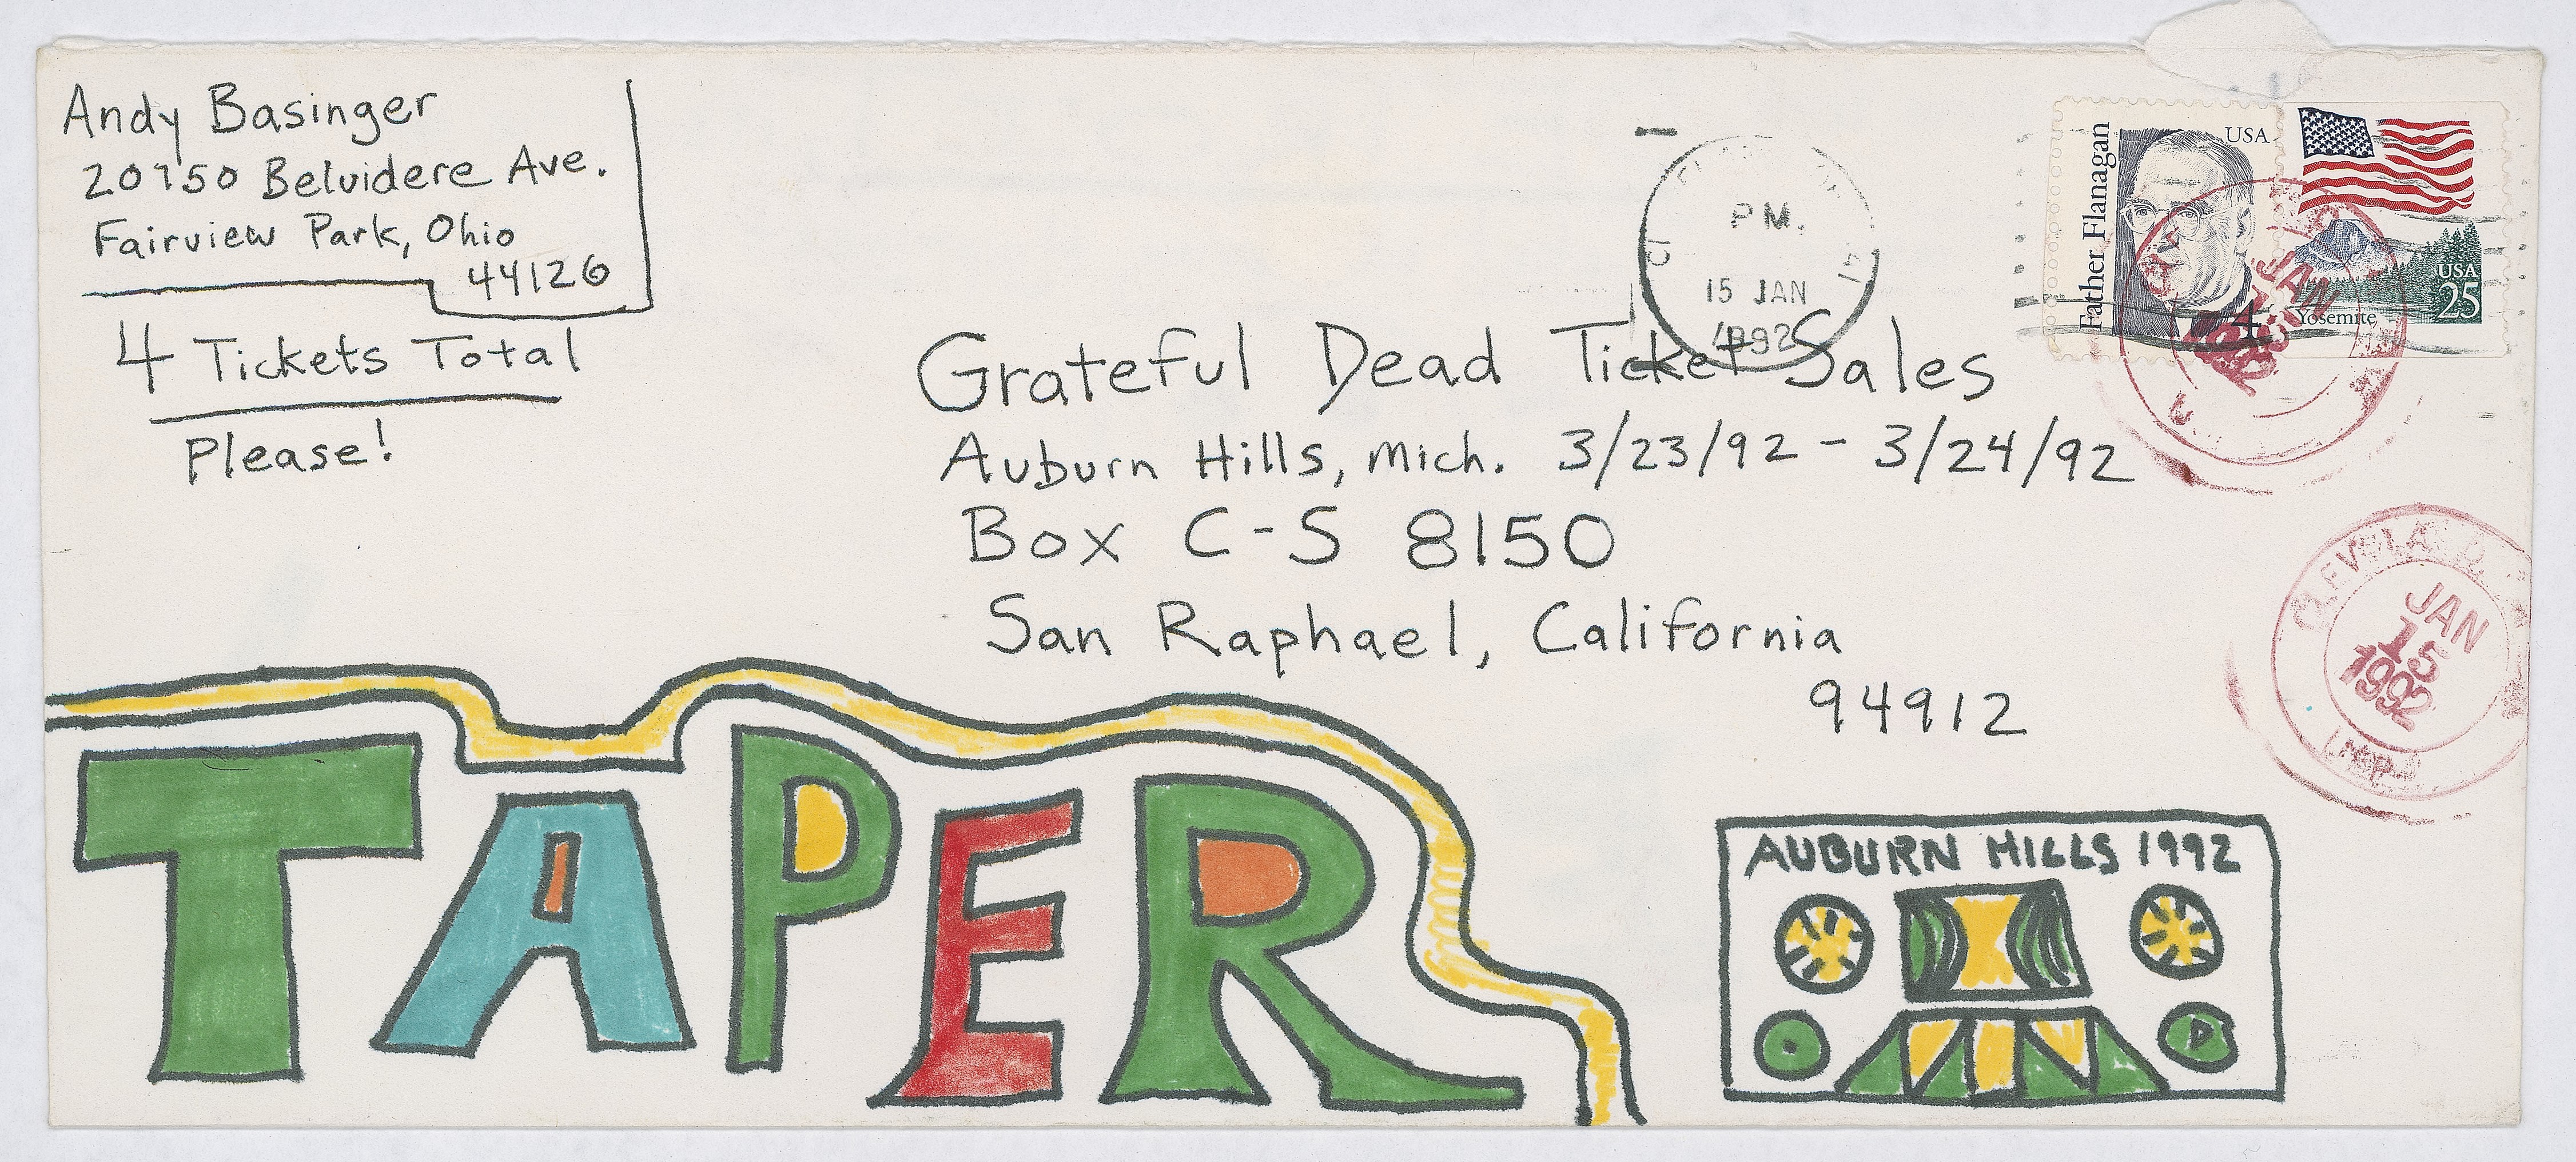 Andy Basinger
20150 Belvidere Ave.
Fairview Park, Ohio
44126
4 Tickets Total
Please!
PM.
15 JAN
1992
Father Flanagan
USA
4
USA
25
Yosemite
JAN
1992
Grateful Dead Ticket Sales
Auburn Hills, Mich. 3/23/92 - 3/24/92
Box C-S 8150
San Raphael, California
94912
CLEVELAND,
JAN
15
1992
TAPER
AUBURN HILLS 1992